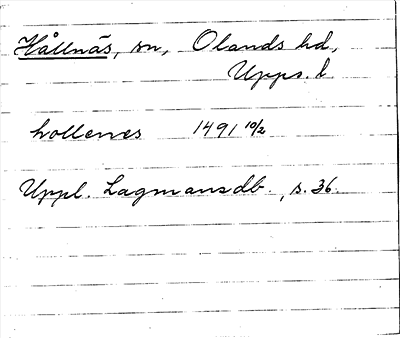 Hållnäs, sn, Olands hd,
Upps. l
hollenes 1491 10/2
Uppl. Lagmansdb., s. 36.